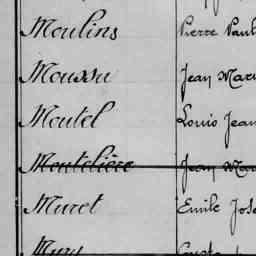 Moulins Pierre Paul
Moussu Jean Mari
Moutel Louis Jean
Moutelière Jean Mar
Muret Emile Jose
Mury